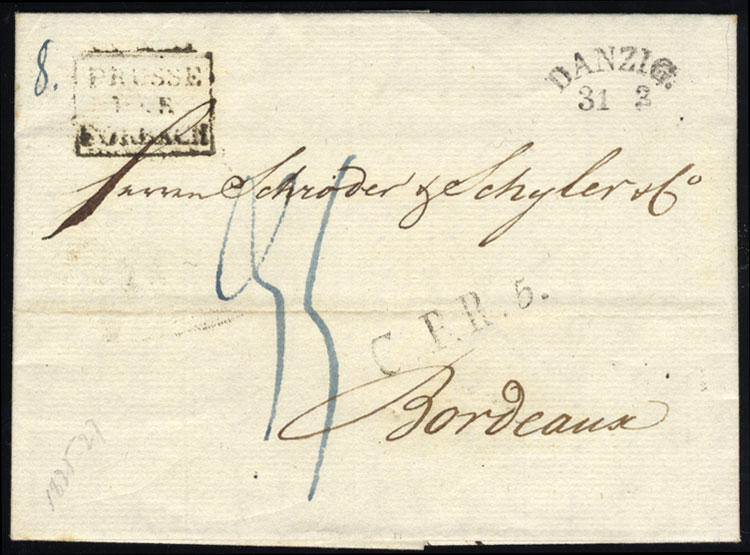 8.
PRUSSE
PAR
FORBACH
DANZIG.
31 3
Herren Schröder & Schyler & Co
C. F. R. 5.
Bordeaux